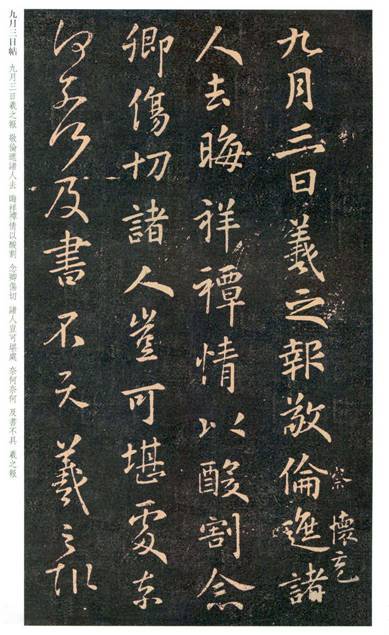 九月三日羲之報敬倫遮諸
察懷充
人去晦祥禫情以酸割念
卿傷切諸人豈可堪處奈
何奈何及書不具羲之報
九月三日帖 九月三日羲之報 敬倫遮諸人去 晦祥禫情以酸割 念卿傷切 諸人豈可堪處 奈何奈何 及書不具 羲之報